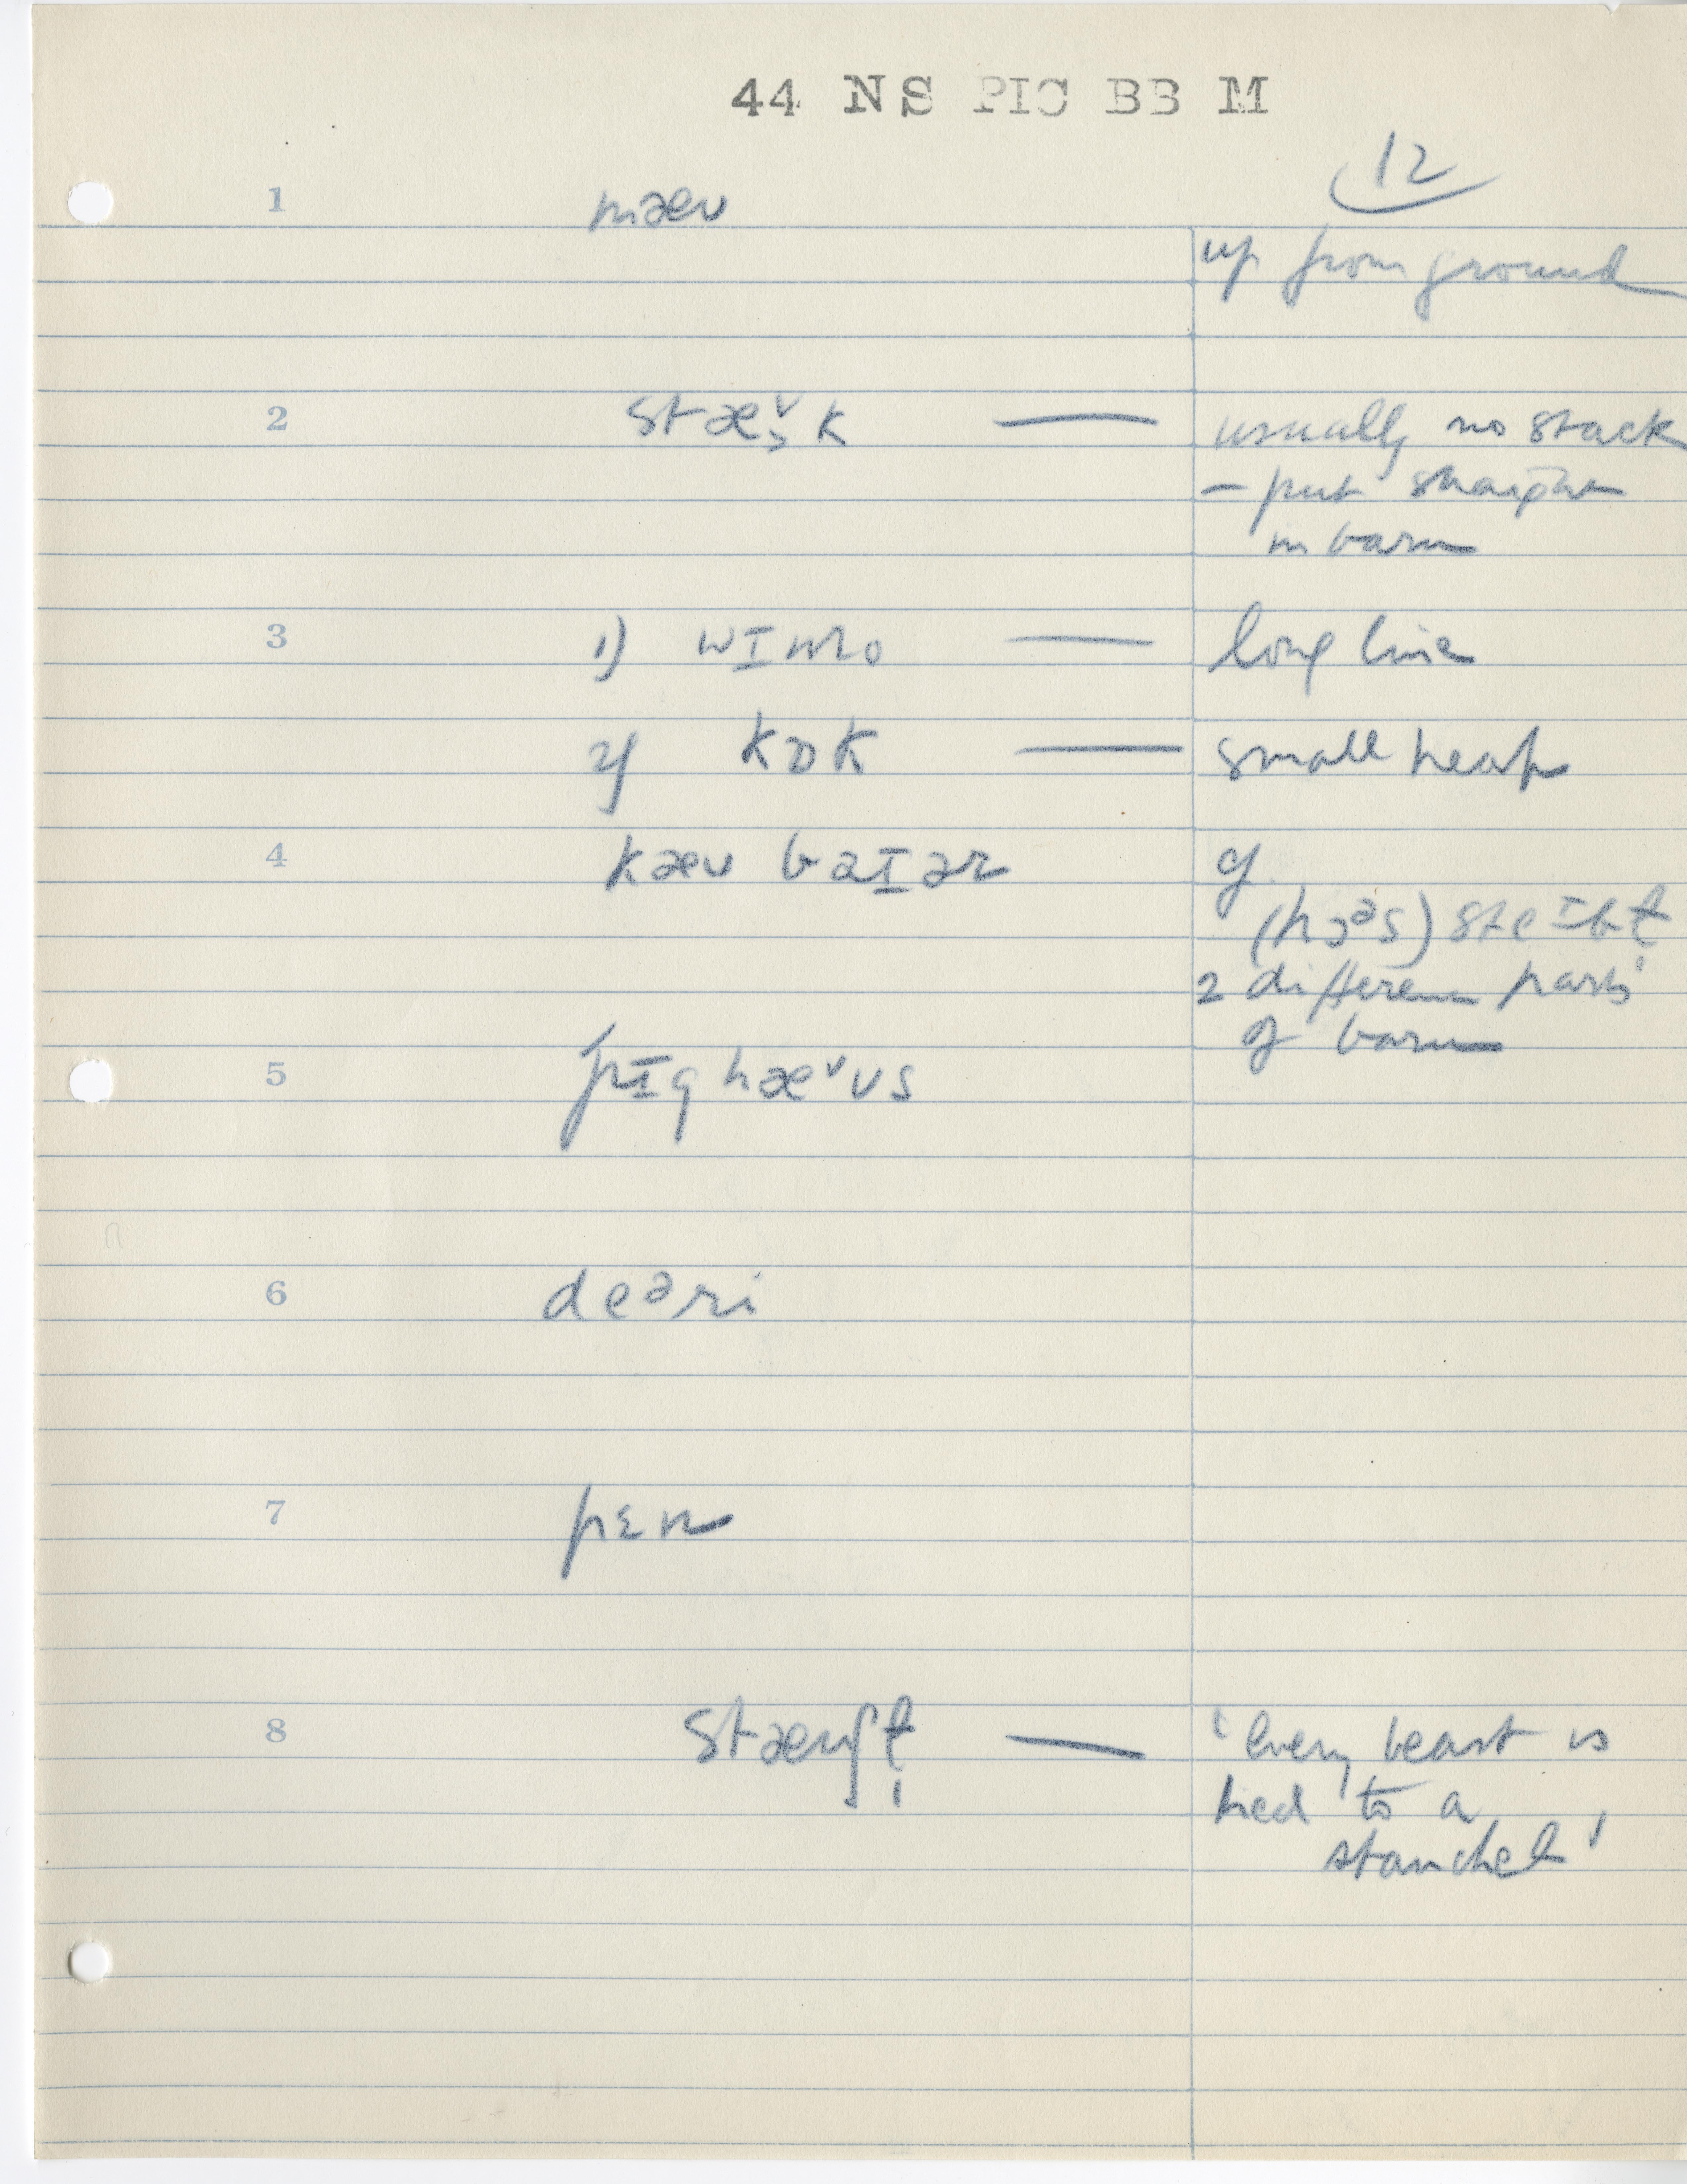 44 NS PIC BB M
12
1 mæʊ
up from ground
2 stæ̬k — usually no stack
— put straight
in barn
3 1) wɪnro — long line
2) kɒk — small heap
4 kæʊ baɪər cf.
(hɔᵊs) steɪbɫ
2 different parts
of barn
5 pɪg hæ̬ʊs
6 deᵊri
7 pɛn
8 stænʃɫ̩ — 'Every beast is
tied to a
stanchel'